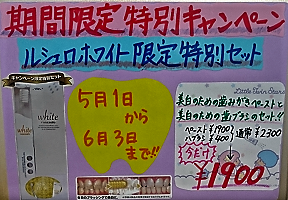 期間限定特別キャンペーン
ルシェロホワイト限定特別セット
キャンペーン限定特別セット
white
white
5月1日
から
6月3日
まで!!
Little Twin Stars
美白のための歯みがきペーストと
美白のための歯ブラシのセット!!
ペースト ¥1900
ハブラシ ¥400
通常 ¥2300
今だけ
¥1900